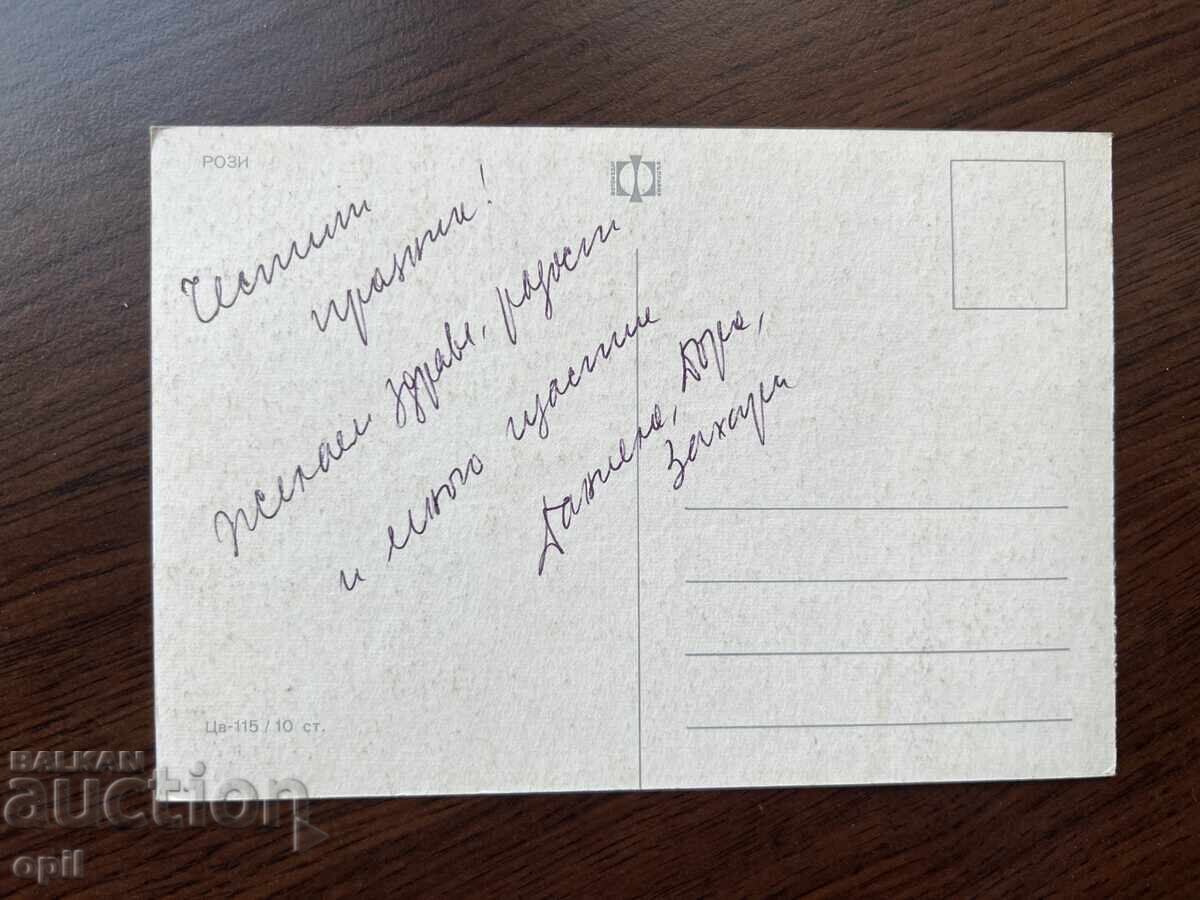 РОЗИ
Честит
празник!
Желаем здраве, радости
и много щастие
Даниела, Дора,
Захари
Цв-115 / 10 ст.
BALKAN
auction
opil